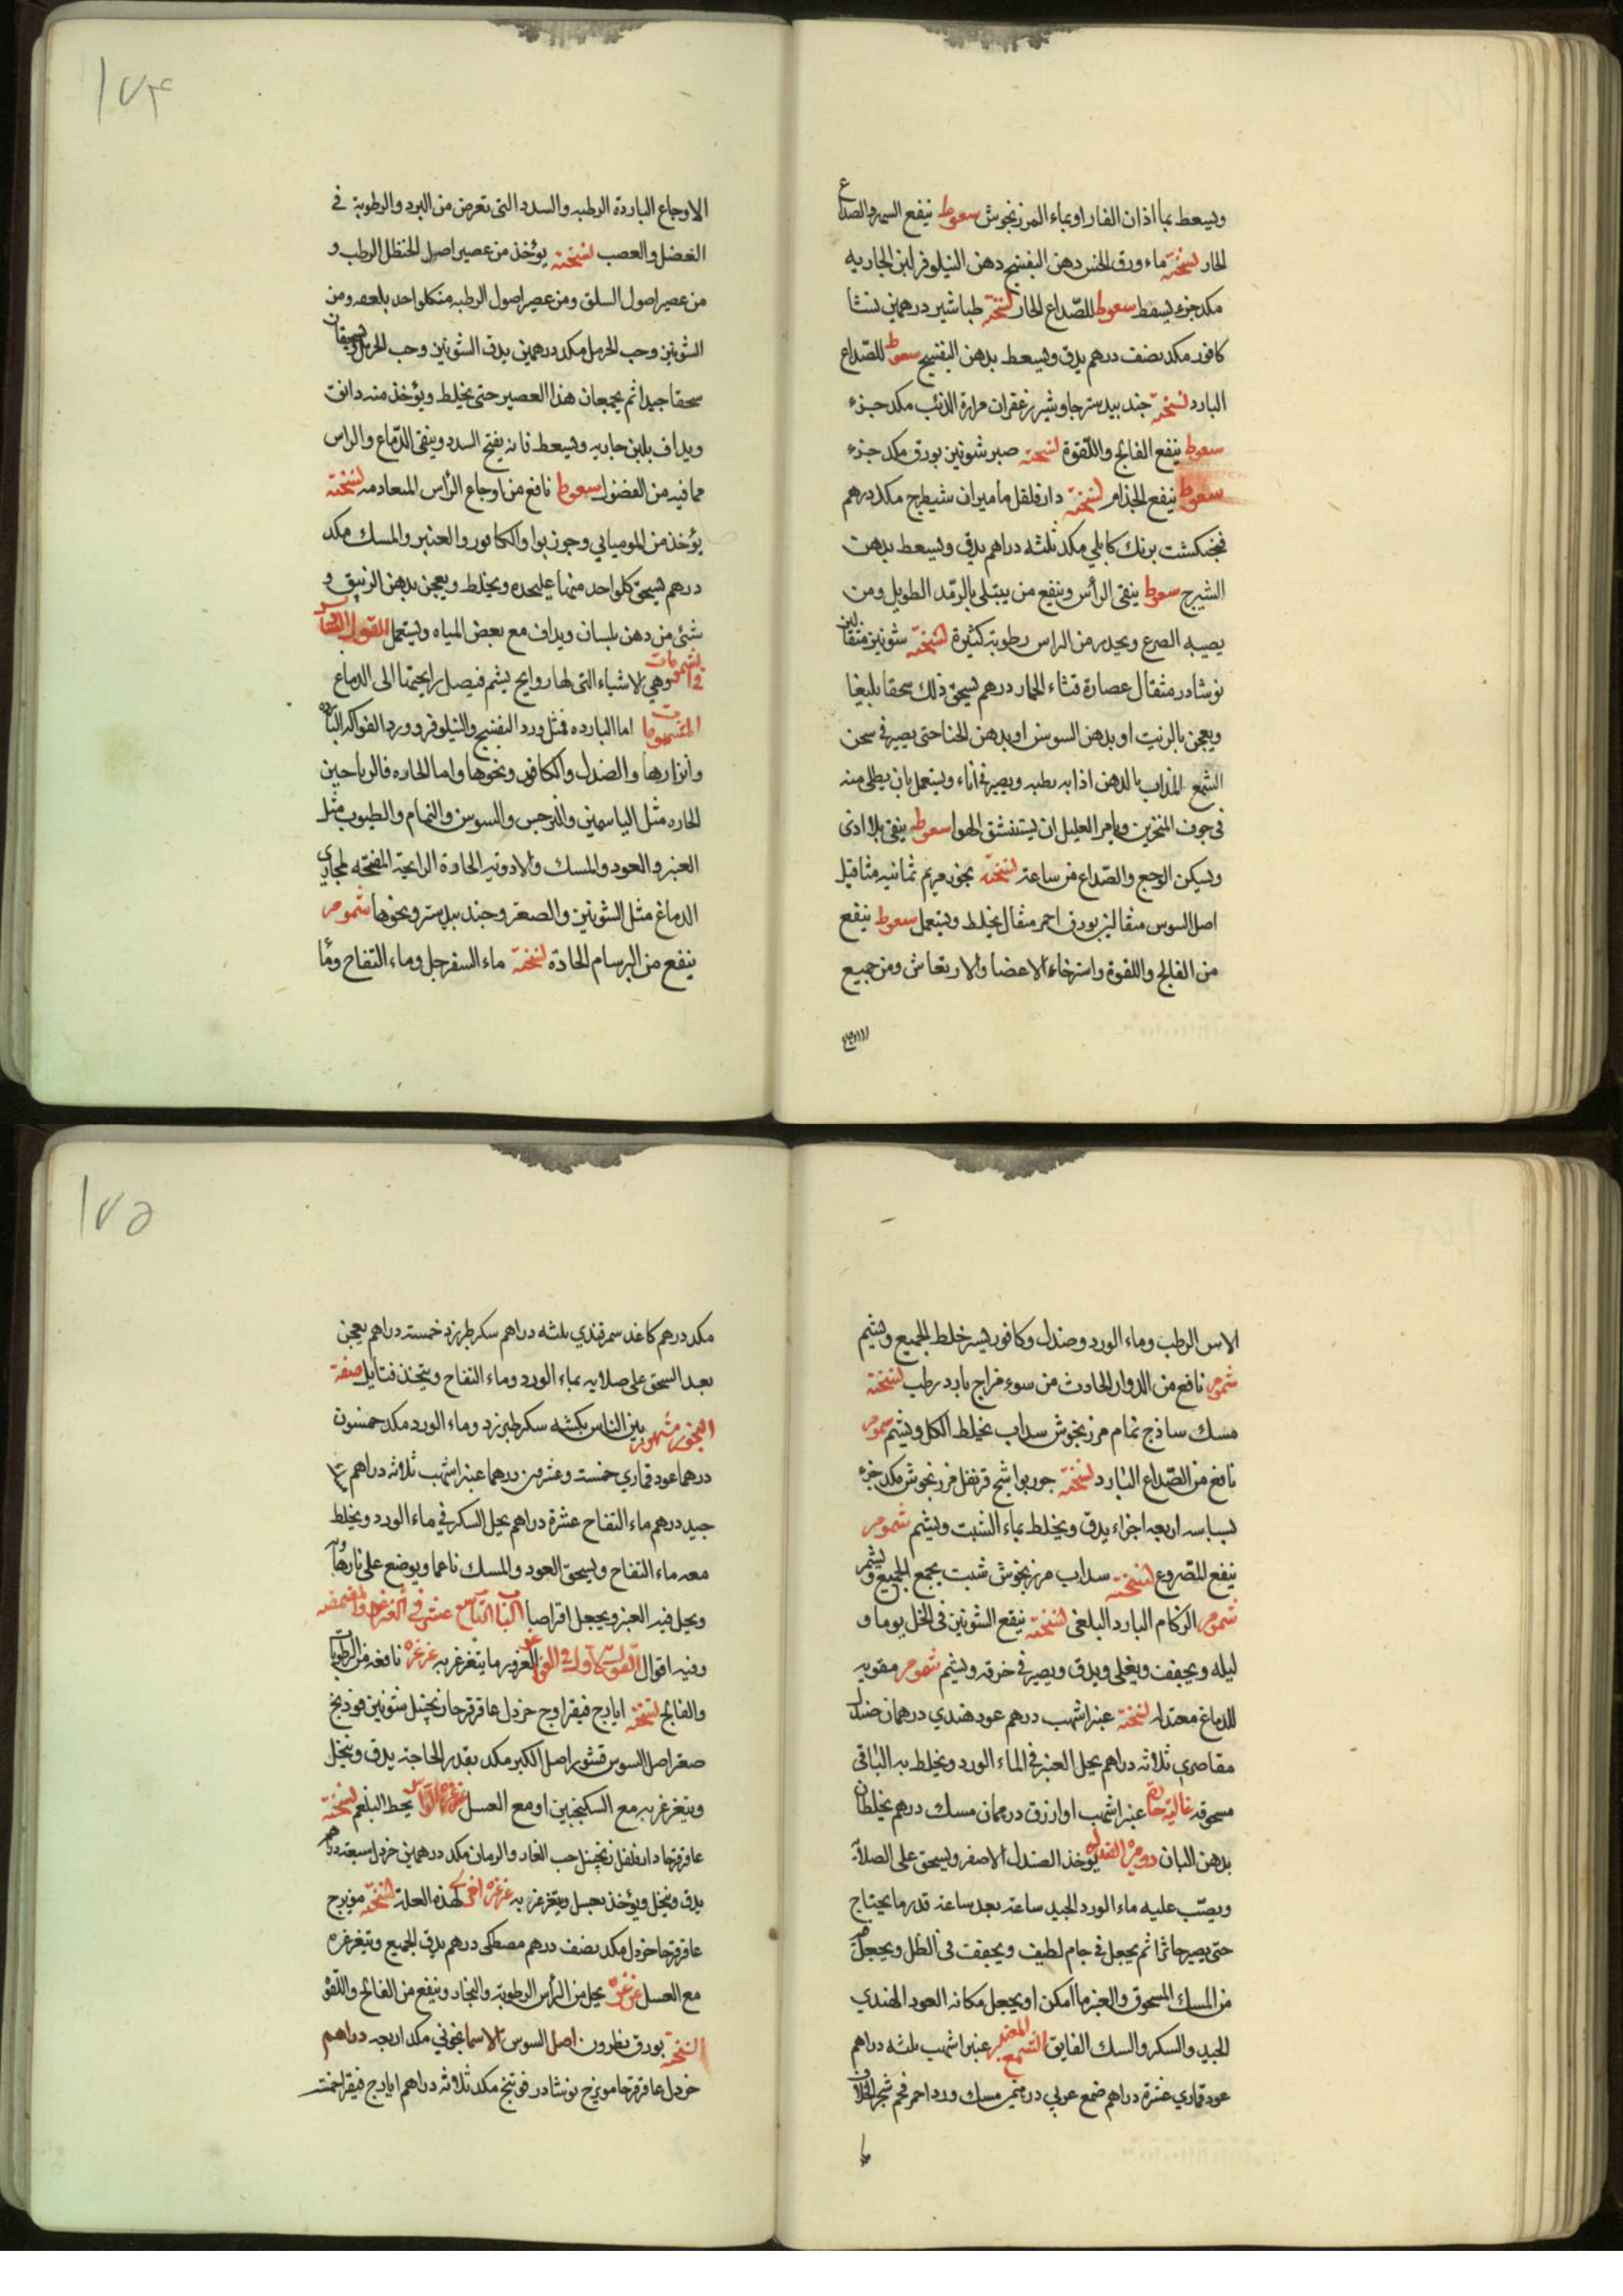 ويسعط بماء اذان الفار اوبماء المرزنجوش سعوط ينفع السهر والصداع
الحار نسخته ماء ورق الخس دهن البنفسج دهن النيلوفر لبن الجاريه
مكد جزء يسعط سعوط للصّداع الحار نسخته طباشير درهمين نشا
كافور مكد نصف درهم يدق ويسعط بدهن البنفسج سعوط للصّداع
البارد نسخته جندبيدستر جاوشير زعفران مرارة الذئب مكد جزء
سعوط ينفع الفالج واللّقوة نسخته صبر شونيز بورق مكد جزء
سعوط ينفع الجذام نسخته دارفلفل ماميران شيطرج مكد درهم
فنجنكشت برنك كابلي مكد ثلثه دراهم يدق ويسعط بدهن
الشيرج سعوط ينقى الرأس وينفع من يبتلى بالرّمد الطويل ومن
يصيبه الصرع ويحدر من الراس رطوبة كثيرة نسخته شونيز مثقالين
نوشادر مثقال عصارة قثاء الحمار درهم يسحق ذلك سحقا بليغا
ويعجن بالزيت او بدهن السوسن او بدهن الحنا حتى يصير في سخن
الشمع المذاب بالدهن اذابه رطبه ويصير في اناء ويستعمل بان يطلى منه
في جوف المنخرين ويامر العليل ان يستنشق الهوا سعوط ينقى بلا اذى
ويسكن الوجع والصّداع من ساعته نسخته بخور مريم ثمانيه مثاقيل
اصل السوس مثقالين بورق احمر مثقال يخلط ويستعمل سعوط ينفع
من الفالج واللقوة واسترخاء الاعضا والارتعاش ومن جميع
الاوجاع
١٧٤
الاوجاع الباردة الرطبه والسدد التى تعرض من البرد والرطوبة في
العضل والعصب نسخته يؤخذ من عصير اصول الحنظل الرطب و
من عصير اصول السلق ومن عصير اصول الرطبه من كلواحد بلعصه ومن
الشونيز وحب الحرمل مكد درهمين يدق الشونيز وحب الحرمل ويسحقان
سحقا جيدا ثم يجمعان هذا العصير حتى يخلط ويؤخذ منه دانق
ويداف بلبن جاريه ويسعط فانه يفتح السدد وينقى الدّماغ والراس
مما فيه من الفضول سعوط نافع من اوجاع الرأس المتعادمه نسخته
يؤخذ من الموميائي وجوز بوا والكافور والعنبر والمسك مكد
درهم يسحق كلواحد منها عليحده ويخلط ويعجن بدهن الزنبق و
شئ من دهن بلسان ويداف مع بعض المياه ويستعمل القول
في المشمومات وهي الاشياء التى لها روايح يشم فيصل رايحتها الى الدماغ
المشمومات اما البارده فمثل ورد البنفسج والنيلوفر وورد الفواكه الباردة
وانزارها والصندل والكافور ونحوها واما الحاره فالرياحين
الحاره مثل الياسمين والنرجس والسوسن والنمام والطيوب مثل
العنبر والعود والمسك والادويه الحادة الرايحة المفتحه لمجاري
الدماغ مثل الشونيز والصعتر وجندبيدستر ونحوها شموم
ينفع من البرسام الحادة نسخته ماء السفرجل وماء التفاح وماء
الاس الرطب وماء الورد وصندل وكافور يسير خلط الجميع ويشم
شموم نافع من الدوار الحادث من سوء مزاج بارد رطب نسخته
مسك ساذج نمام مرزنجوش سداب يخلط الكل ويشم شموم
نافع من الصّداع البارد نسخته جوزبوا شيح قرنفل مرزنجوش مكد جزء
بسباسه اربعه اجزاء يدق ويخلط بماء الشبت ويشم شموم
ينفع المصروع نسخته سداب مرزنجوش شبت يجمع الجميع ويشم
شموم الزكام البارد البلغمى نسخته ينقع الشونيز في الخل يوما و
ليله ويجفف ويغلى ويدق ويصير في خرقه ويشم شموم مقويه
للدماغ معتدله نسخته عنبر اشهب درهم عود هندي درهمان صندل
مقاصري ثلاثه دراهم يحل العنبر في الماء الورد ويخلط به الباقى
مسحوقه غالية حارة عنبر اشهب او ازرق درهمان مسك درهم يخلطان
بدهن البان يؤخذ الصندل الاصفر ويسحق على الصلاة
ويصّب عليه ماء الورد الجيد ساعة بعد ساعة قدر ما يحتاج
حتى يصير خاثرا ثم يجعل في جام لطيف ويجفف في الظل ويجعل
من المسك المسحوق والعنبر ما امكن او يجعل مكانه العود الهندي
الجيد والسكر والسك الفايق الشمع المعنبر عنبر اشهب ثلثه دراهم
عود قماري عشرة دراهم ضمع عربي درهمين مسك ورد احمر فحم شجر الخلاف
١٧٥
مكد درهم كاغد سمرقندي ثلثه دراهم سكر طبرزد خمسته دراهم يعجن
بعد السحق على صلايه بماء الورد وماء التفاح ويتخذ فتايل صفة
البخور مشهور بين الناس بكشه سكر طبرزد وماء الورد مكد خمسون
درهما عود قماري خمسته وعشرون درهما عنبر اشهب ثلاثه دراهم
جيد درهم ماء التفاح عشرة دراهم يحل السكر في ماء الورد ويخلط
معه ماء التفاح ويسحق العود والمسك ناعما ويوضع على نار
ويحل فيه العنبر ويجعل اقراصا الباب التاسع عشر في الغرغرة والمضمضه
وفيه اقوال القول الاول في الغرغرة ما يتغرغر به غرغرة نافعه من الرطوبات
والفالج نسخته ايارج فيقرا وج خردل عاقرقرحا زنجبيل شونيز فودنج
صعتر اصل السوس قشور اصل الكبر مكد بقدر الحاجة يدق وينخل
ويتغرغر به مع السكنجبين او مع العسل غرغرة يحط البلغم نسخته
عاقرقرحا دارفلفل زنجبيل حب الغار والرمان مكد درهمين خردل سبعة دراهم
يدق وينخل ويؤخذ بعسل ويتغرغر به غرغرة اخرى لهذه العلة نسخته مويزج
عاقرقرحا خردل مكد نصف درهم مصطكى درهم يدق الجميع ويتغرغره
مع العسل غرغرة يحل من الرأس الرطوبة والبخار وينفع من الفالج واللّقوة
نسخته بورق نطرون اصل السوس الاسمانجوني مكد اربعه دراهم
خردل عاقرقرحا مويزج نوشادر فوتنج مكد ثلاثه دراهم ايارج فيقرا خمسه